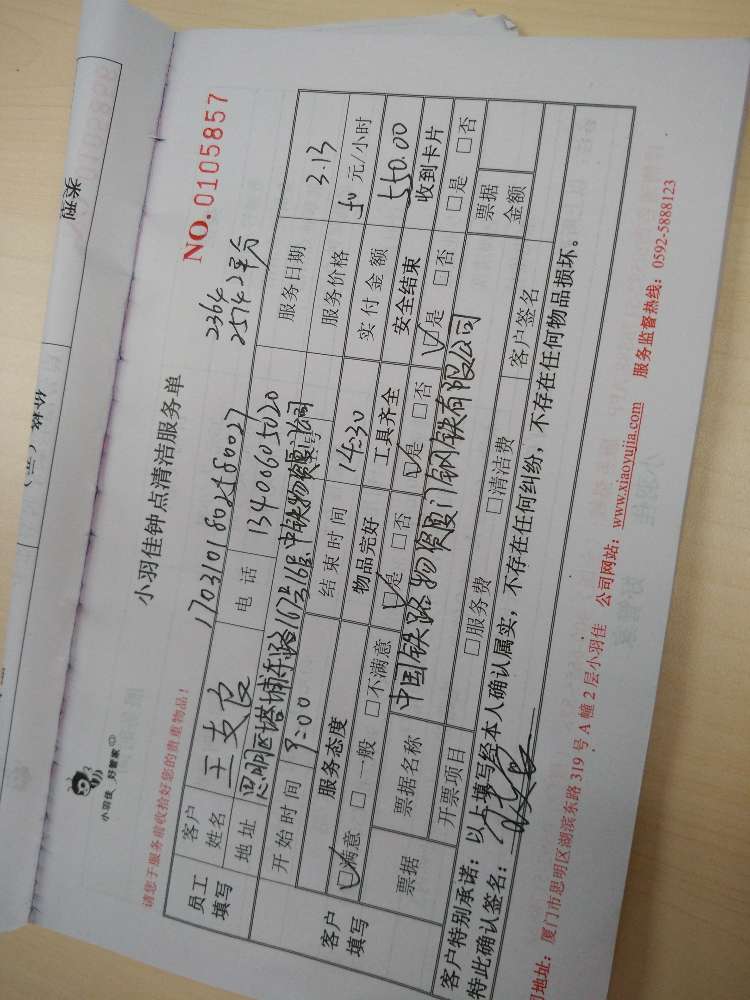 小羽佳 好管家
小羽佳钟点清洁服务单
NO.0105857
请您于服务前收拾好您的贵重物品!
1703101802580027
2364
2574 2平分
员工填写
客户姓名
电话
13400605020
服务日期
3.13
地址
思明区塔埔东路167号16层中铁物资厦门公司
服务价格
50元/小时
开始时间
9:00
结束时间
14:30
实付金额
550.00
客户填写
服务态度
物品完好
工具齐全
安全结束
收到卡片
☑满意 □一般 □不满意
☑是 □否
☑是 □否
☑是 □否
□是 □否
票据
票据名称
中国铁路物资厦门钢铁有限公司
票据金额
开票项目
□服务费 □清洁费
客户签名
客户特别承诺:以上填写经本人确认属实,不存在任何纠纷,不存在任何物品损坏。
特此确认签名:
地址:厦门市思明区湖滨东路319号A幢2层小羽佳 公司网站:www.xiaoyujia.com 服务监督热线:0592-5888123
类型